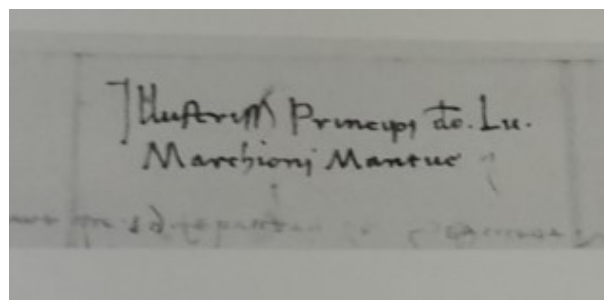 Illustriss Principi do. Lu.
Marchioni Mantue